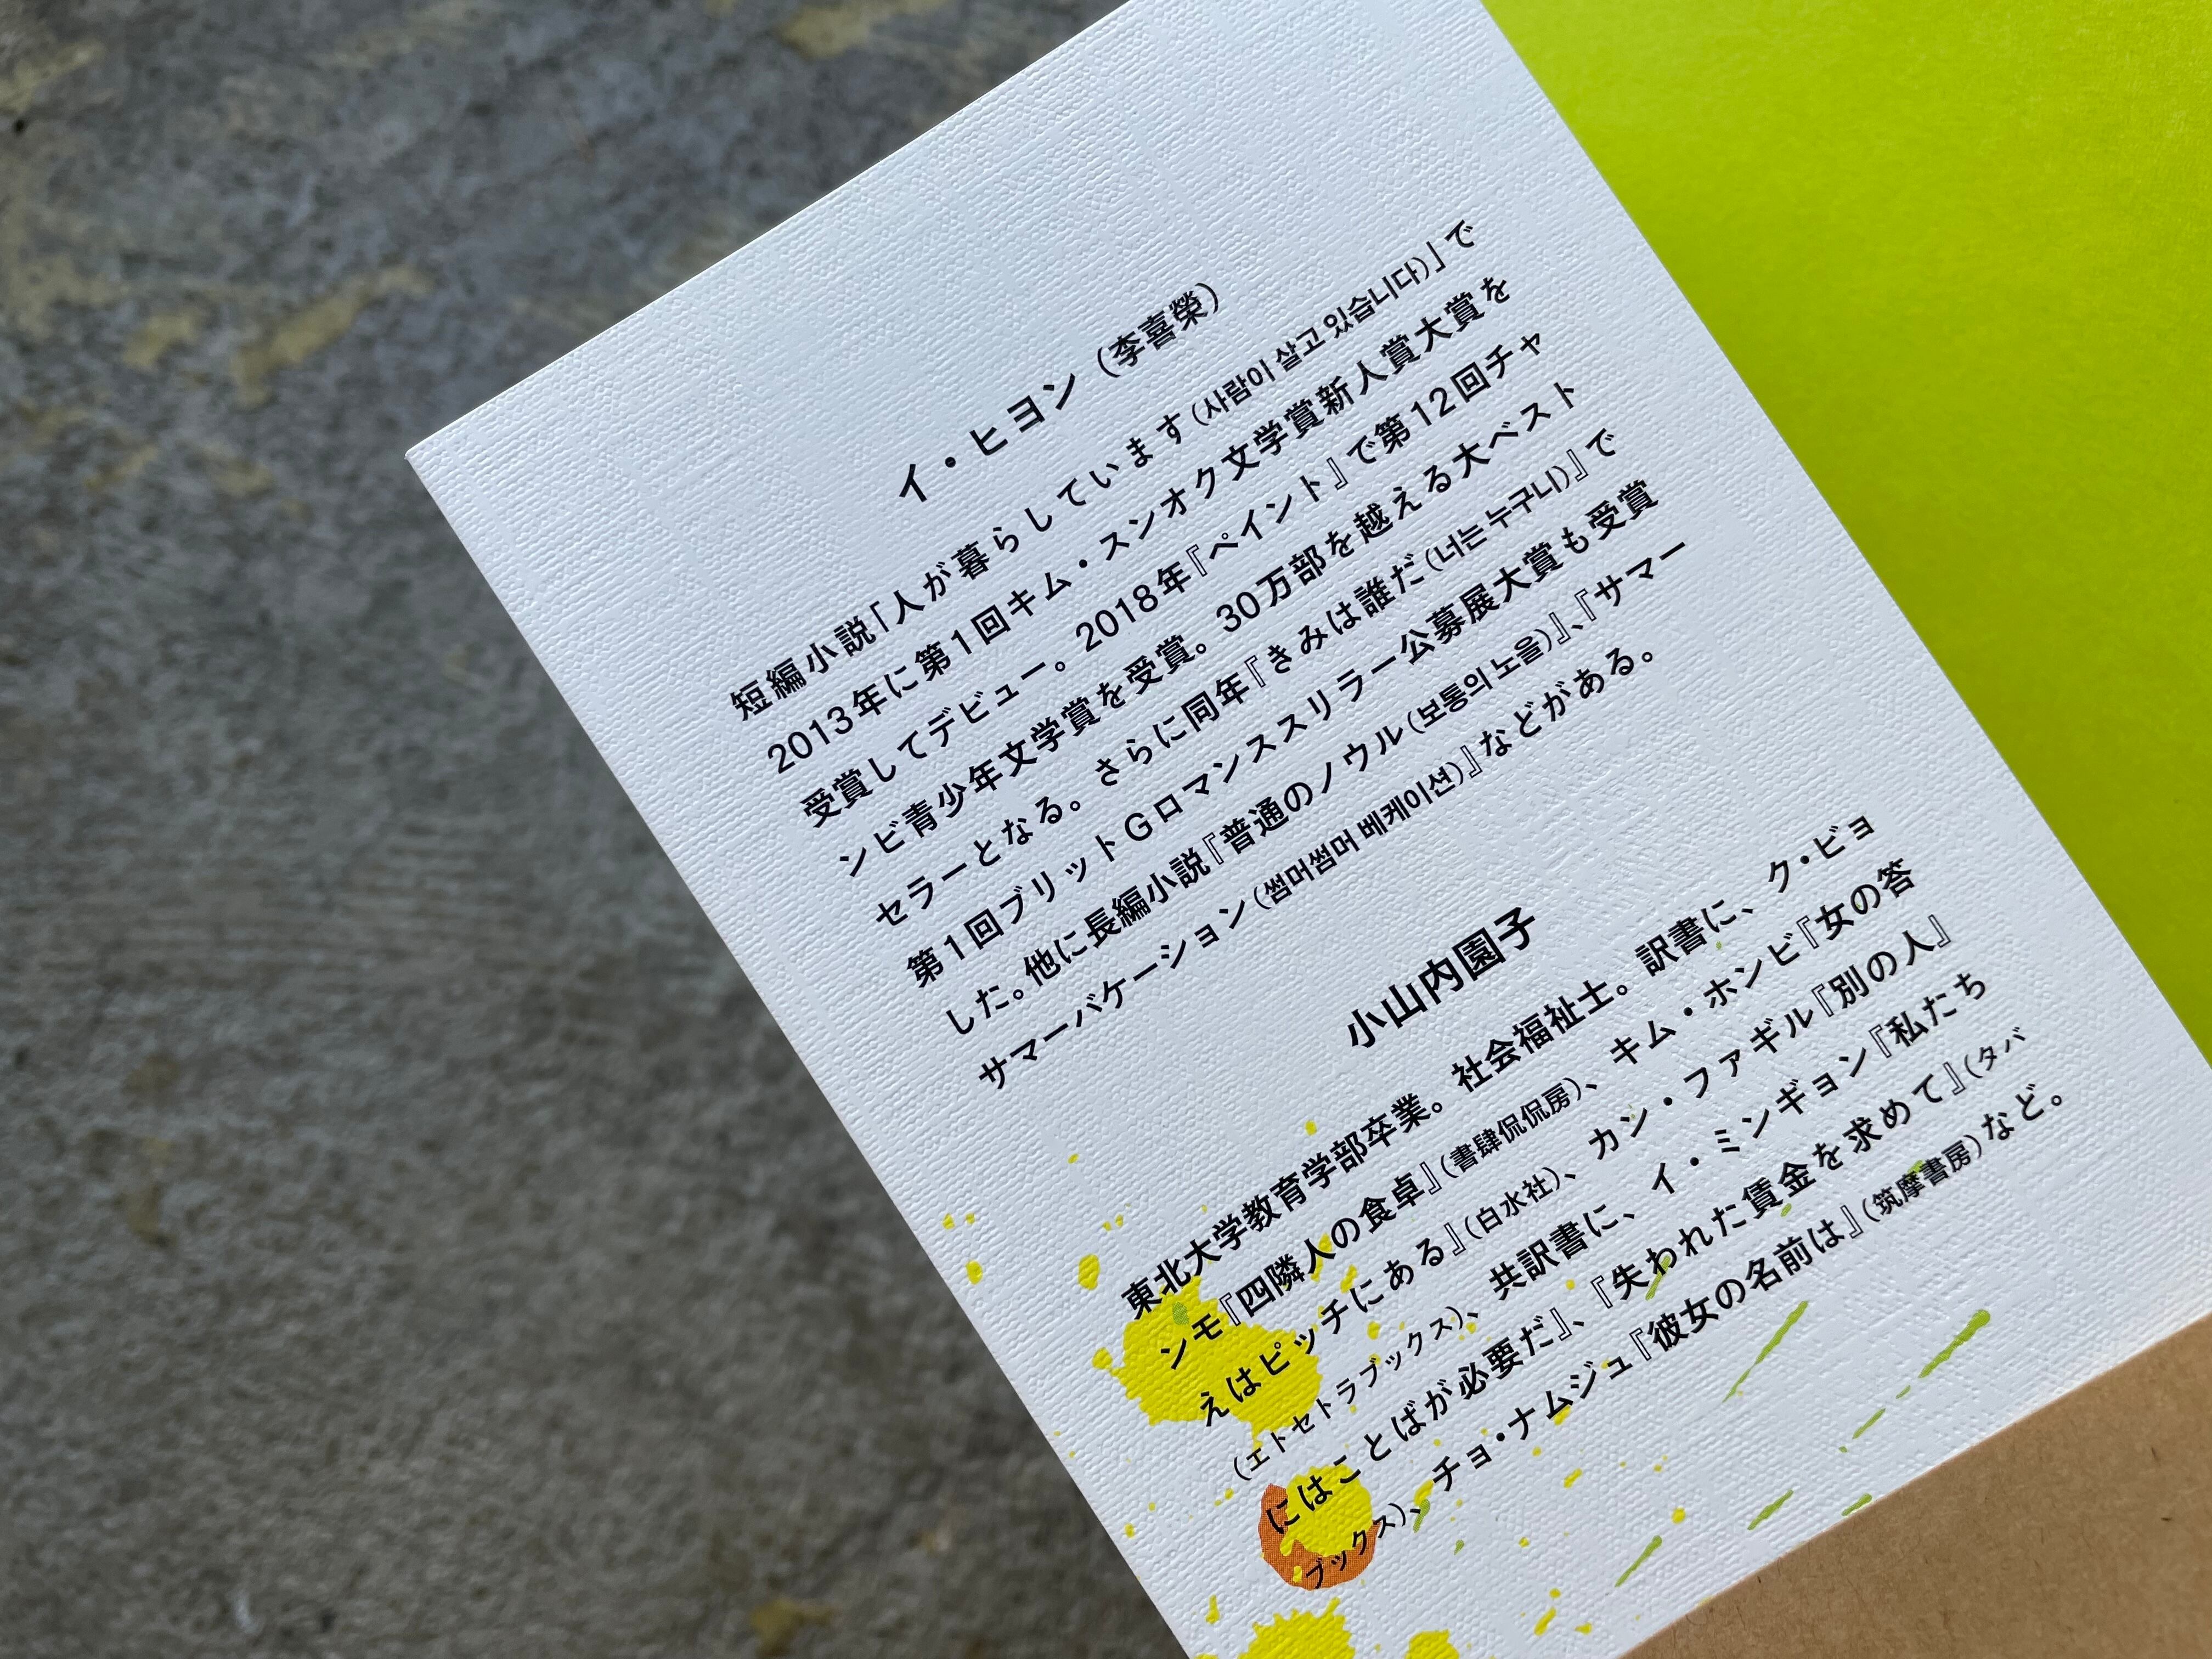 イ・ヒヨン（李喜榮）
短編小説「人が暮らしています（사람이 살고 있습니다）」で
2013年に第1回キム・スンオク文学賞新人賞大賞を
受賞してデビュー。2018年『ペイント』で第12回チャ
ンビ青少年文学賞を受賞。30万部を越える大ベスト
セラーとなる。さらに同年『きみは誰だ（너는 누구니）』で
第1回ブリットGロマンススリラー公募展大賞も受賞
した。他に長編小説『普通のノウル（보통의 노을）』、『サマー
サマーバケーション（썸머썸머 베케이션）』などがある。
小山内園子
東北大学教育学部卒業。社会福祉士。訳書に、ク・ビョ
ンモ『四隣人の食卓』（書肆侃侃房）、キム・ホンビ『女の答
えはピッチにある』（白水社）、カン・ファギル『別の人』
（エトセトラブックス）、共訳書に、イ・ミンギョン『私たち
にはことばが必要だ』、『失われた賃金を求めて』（タバ
ブックス）、チョ・ナムジュ『彼女の名前は』（筑摩書房）など。